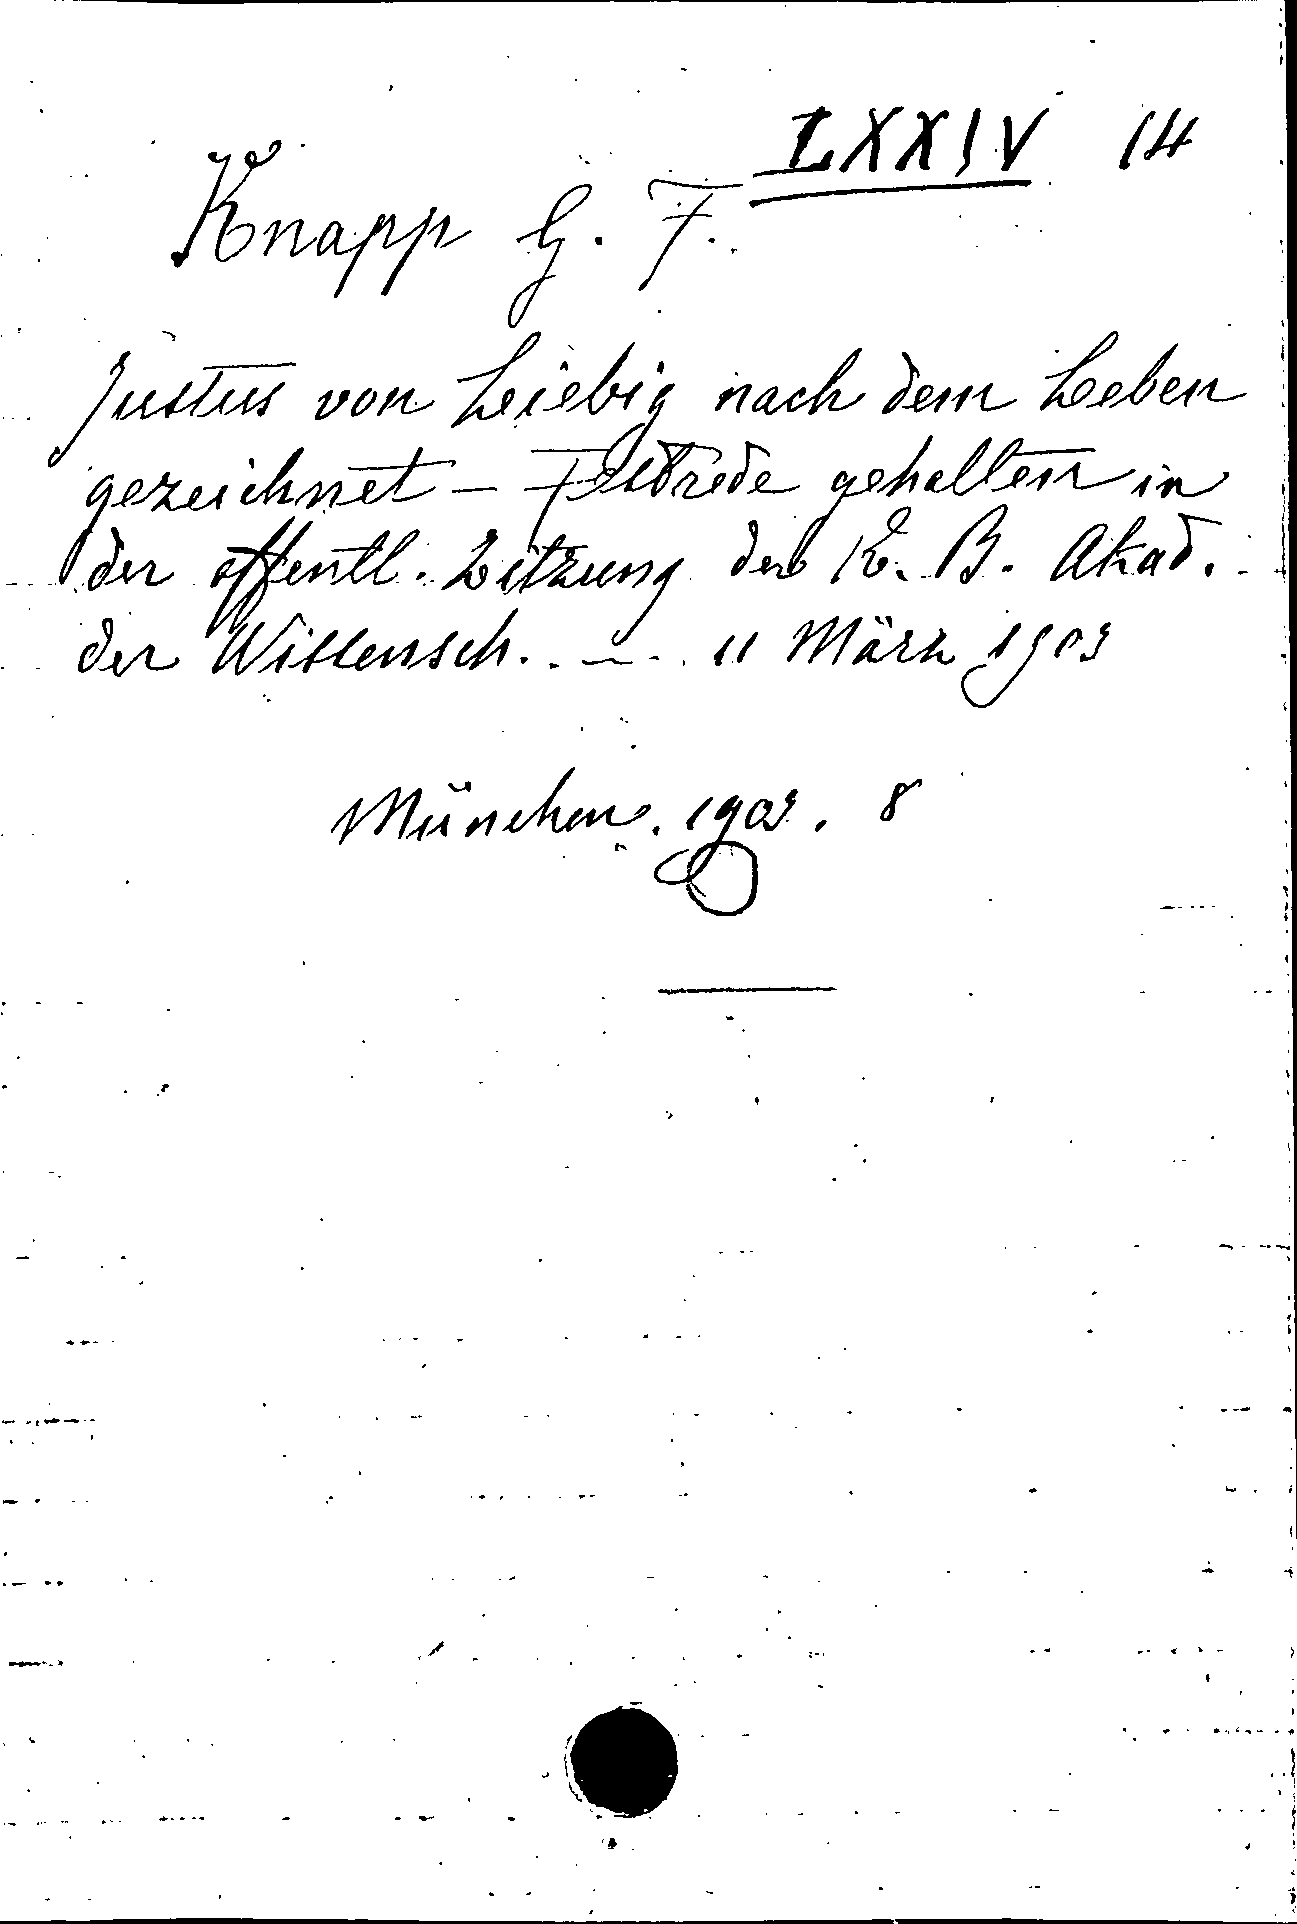 LXXIV 14
Knapp G. F.
Justus von Liebig nach dem Leben
gezeichnet - Festrede gehalten in
der öffentl. Sitzung der K. B. Akad.
der Wissensch. . — . 11 März 1903
München. 1903. 8